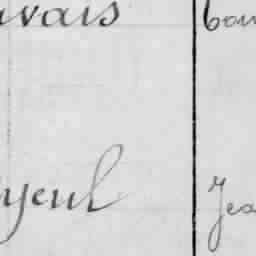 uvais bou
yeul Jea